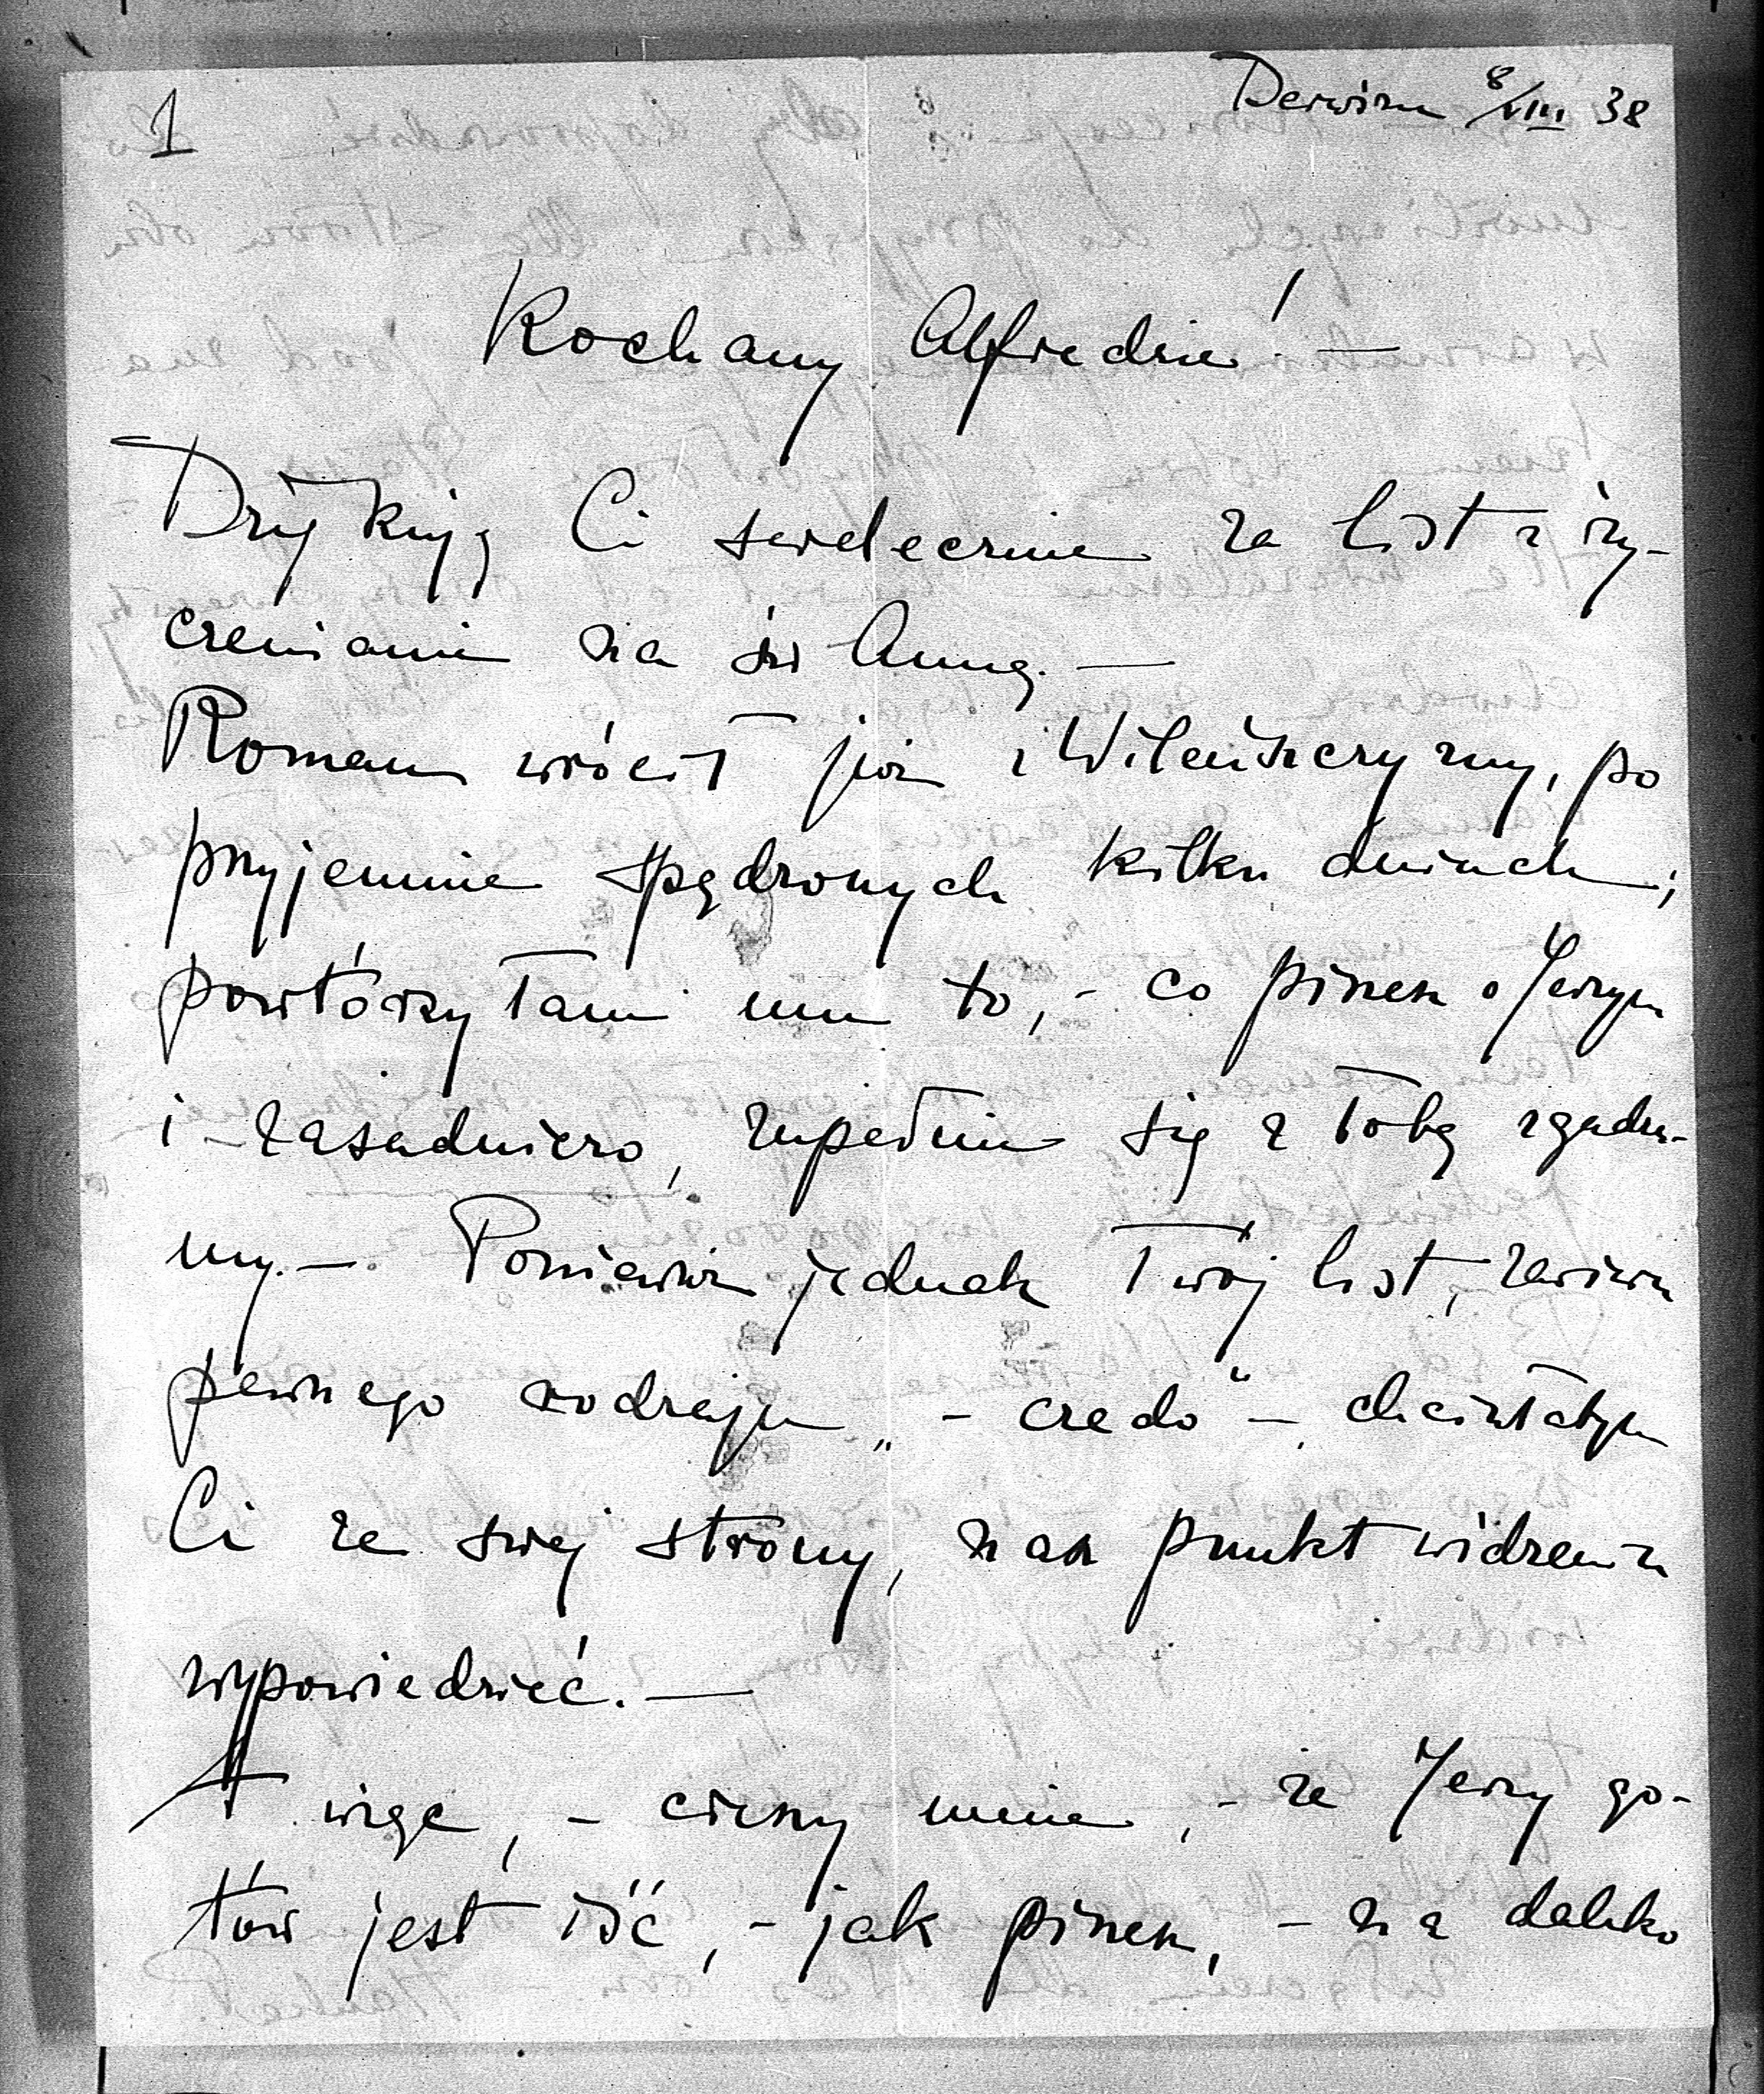 1
Derwisn 8/VIII 38
Kochany Alfredzie! —
Dziękuję Ci serdecznie za list z ży-
czeniami na św Annę. —
Roman wrócił już z Wileńszczyzny, po
przyjemnie spędzonych kilku dniach;
powtórzyłam mu to, - co piszesz o Jerzym
i - zasadniczo, zupełnie się z Tobą zgadza-
my. — Ponieważ jednak Twój list, zawiera
pewnego rodzaju „ - credo" — chciałabym
Ci ze swej strony, nasz punkt widzenia
wypowiedzieć. —
A więc, - cieszy mnie, - że Jerzy go-
tów jest iść, - jak piszesz, - na daleko